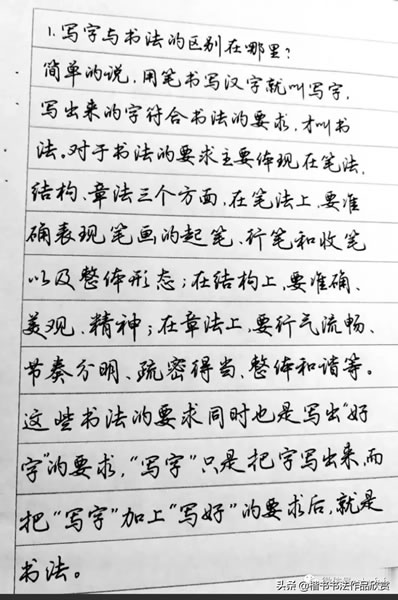 1.写字与书法的区别在哪里?
简单的说，用笔书写汉字就叫写字，
写出来的字符合书法的要求，才叫书
法。对于书法的要求主要体现在笔法、
结构、章法三个方面，在笔法上，要准
确表现笔画的起笔、行笔和收笔
以及整体形态；在结构上，要准确、
美观、精神；在章法上，要行气流畅、
节奏分明、疏密得当、整体和谐等。
这些书法的要求同时也是写出“好
字”的要求，“写字”只是把字写出来，而
把“写字”加上“写好”的要求后，就是
书法。
头条@楷书书法作品欣赏